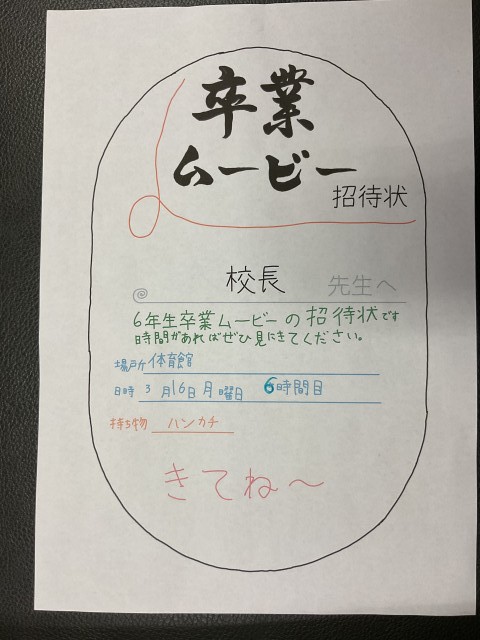 卒業
ムービー
招待状
校長 先生へ
6年生卒業ムービーの招待状です
時間があればぜひ見にきてください。
場所 体育館
日時 3月16日月曜日 6時間目
持ち物 ハンカチ
きてね〜